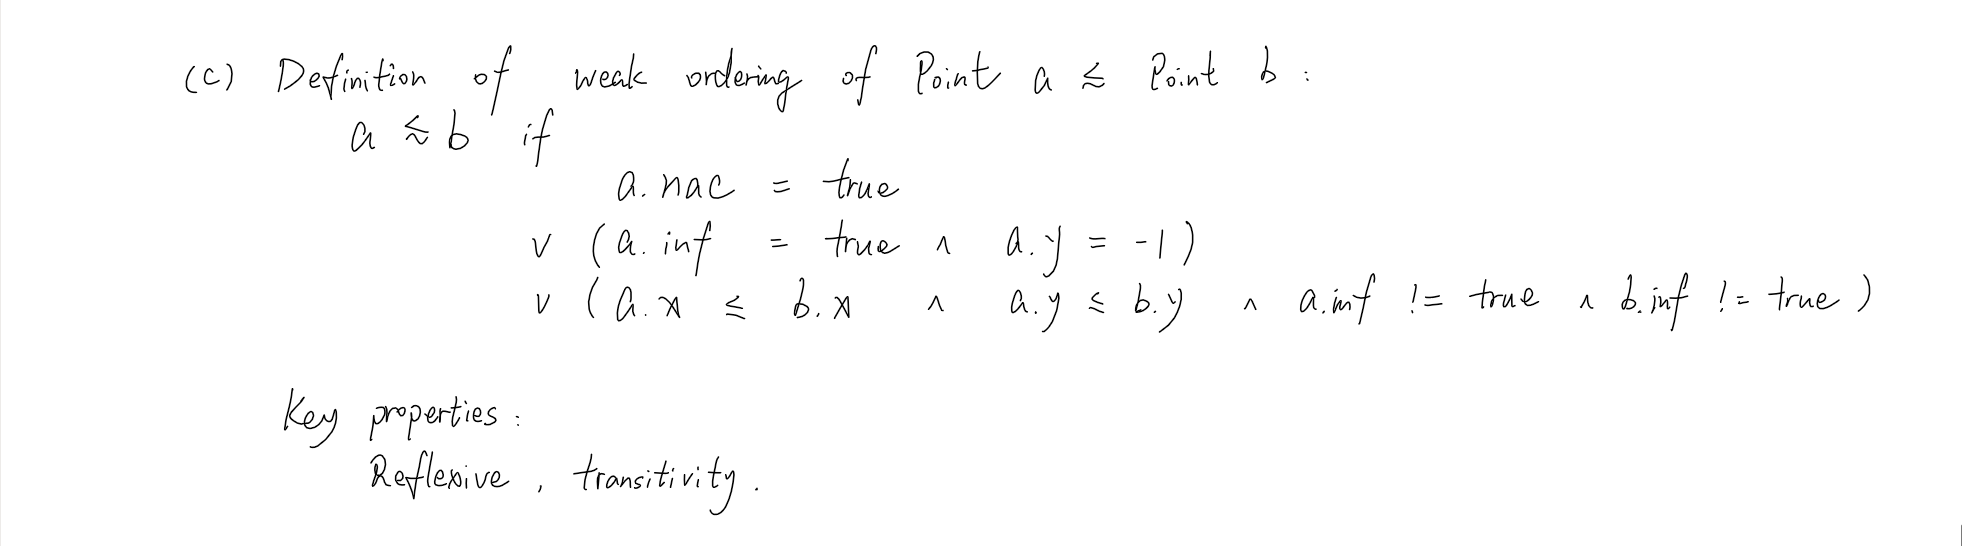 (c) Definition of weak ordering of Point a ≲ Point b :
a ≲ b if
a. nac = true
∨ (a. inf = true ∧ a.y = -1)
∨ (a.x ≤ b.x ∧ a.y ≤ b.y ∧ a.inf != true ∧ b.inf != true)
Key properties :
Reflexive , transitivity .